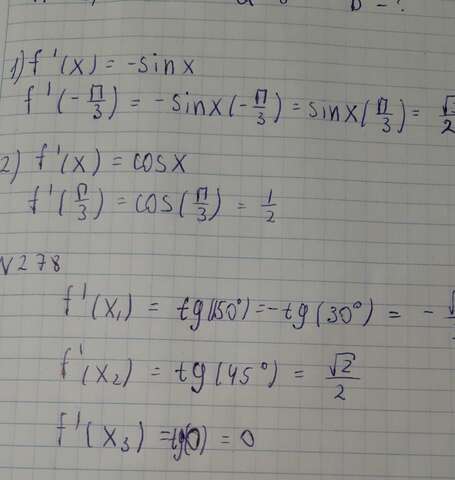 1) f'(x) = -sin x
f'(-π/3) = -sin x(-π/3) = sin x(π/3) = √3/2
2) f'(x) = cos x
f'(π/3) = cos(π/3) = 1/2
N278
f'(x₁) = tg(150°) = -tg(30°) = - √
f'(x₂) = tg(45°) = √2/2
f'(x₃) = tg(0) = 0